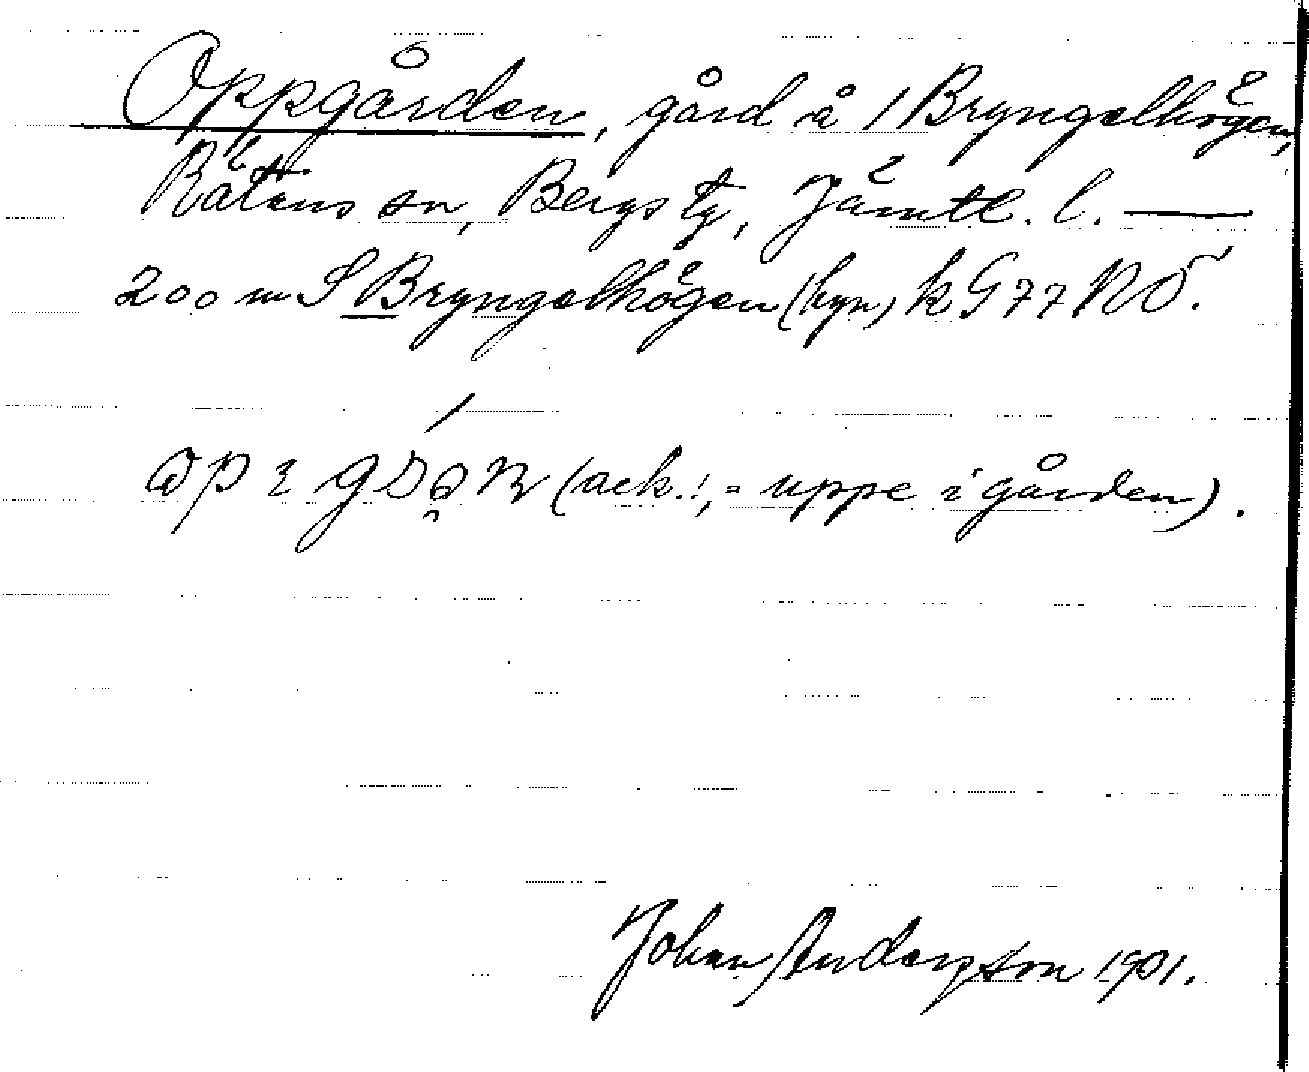 Oppgården, gård å 1 Bryngelhögen,
Rätans sn, Bergs tg, Jämtl. l. —
200 m S Bryngelhögen (byn) k G 77 NÖ.
(ack.!, = uppe i gården).
Johan Anderson 1901.